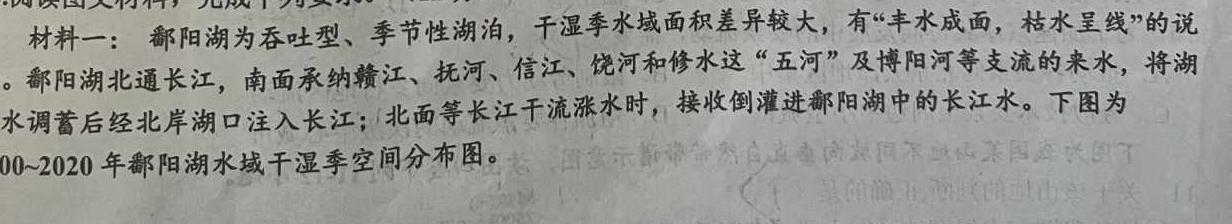 阅读图文材料，完成下列要求。
材料一：鄱阳湖为吞吐型、季节性湖泊，干湿季水域面积差异较大，有“丰水成面，枯水呈线”的说
。鄱阳湖北通长江，南面承纳赣江、抚河、信江、饶河和修水这“五河”及博阳河等支流的来水，将湖
水调蓄后经北岸湖口注入长江；北面等长江干流涨水时，接收倒灌进鄱阳湖中的长江水。下图为
00~2020年鄱阳湖水域干湿季空间分布图。